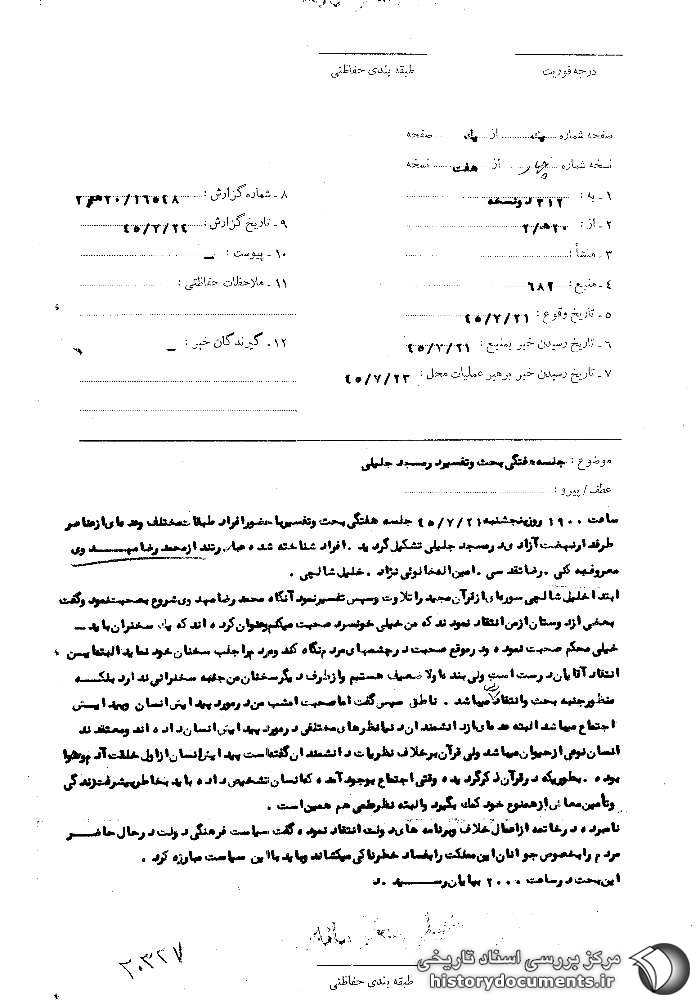 درجه فوریت
طبقه بندی حفاظتی
صفحه شماره یک از یک صفحه
نسخه شماره چهار از هفت نسخه
۱ـ به : ۳۱۲ دونسخه
۲ـ از : ۲۰ هـ ۲/
۳ـ منشأ :
۴ـ منبع : ۶۸۲
۵ـ تاریخ وقوع : ۴۵/۷/۲۱
۶ـ تاریخ رسیدن خبر بمنبع : ۴۵/۷/۲۱
۷ـ تاریخ رسیدن خبر برهبر عملیات محل : ۴۵/۷/۲۳
۸ـ شماره گزارش : ۲۰/۱۶۵۴۸ هـ ۲
۹ـ تاریخ گزارش : ۴۵/۷/۲۴
۱۰ـ پیوست : ـ
۱۱ـ ملاحظات حفاظتی :
۱۲ـ گیرندگان خبر : ـ
موضوع : جلسه هفتگی بحث وتفسیر در مسجد جلیلی
عطف/پیرو :
ساعت ۱۹۰۰ روز پنجشنبه ۴۵/۷/۲۱ جلسه هفتگی بحث وتفسیر با حضور افراد طبقات مختلف وعده ای از عناصر
طرفدار نهضت آزادی در مسجد جلیلی تشکیل گردید . افراد شناخته شده عبارتند از محمد رضا مهدوی
معروف به کنی . رضا تقدسی . امین اله خانوئی نژاد . خلیل شالچی .
ابتدا خلیل شالچی سوره ای از قرآن مجید را تلاوت وسپس تفسیر نمود آنگاه محمد رضا مهدوی شروع بصحبت نمود وگفت
بعضی از دوستان از من انتقاد نمودند که من خیلی خونسرد صحبت میکنم وعنوان کرده اند که یک سخنران باید
خیلی محکم صحبت نموده ودر موقع صحبت در چشمهای مردم نگاه کند ومردم را جلب سخنان خود نماید البته این
انتقاد آقایان درست است ولی بنده اولا ضعیف هستم واز طرف دیگر سخنان من جنبه سخنرانی ندارد بلکه
منظور جنبه بحث وانتقاد میباشد . ناطق سپس گفت اما صحبت امشب من در مورد پیدایش انسان وپیدایش
اجتماع میباشد البته عده ای از دانشمندان دنیا نظرهای مختلفی در مورد پیدایش انسان داده اند ومعتقدند
انسان نوعی از حیوان میباشد ولی قرآن برخلاف نظریات دانشمندان گفته است پیدایش انسان از اول خلقت آدم وحوا
بوده . بطوریکه در قرآن ذکر گردیده وقتی اجتماع بوجود آمده که انسان تشخیص داده باید بخاطر پیشرفت زندگی
وتأمین معاش از همنوع خود کمک بگیرد والبته نظر علمی هم همین است .
نامبرده در خاتمه از اعمال خلاف وبرنامه های دولت انتقاد نموده گفت سیاست فرهنگی دولت در حال حاضر
مردم را بخصوص جوانان این مملکت را بفساد خطرناکی میکشاند وباید با این سیاست مبارزه کرد .
این بحث در ساعت ۲۰۰۰ بپایان رسید . د
۲۰۳۲۷
طبقه بندی حفاظتی
مرکز بررسی اسناد تاریخی
historydocuments.ir